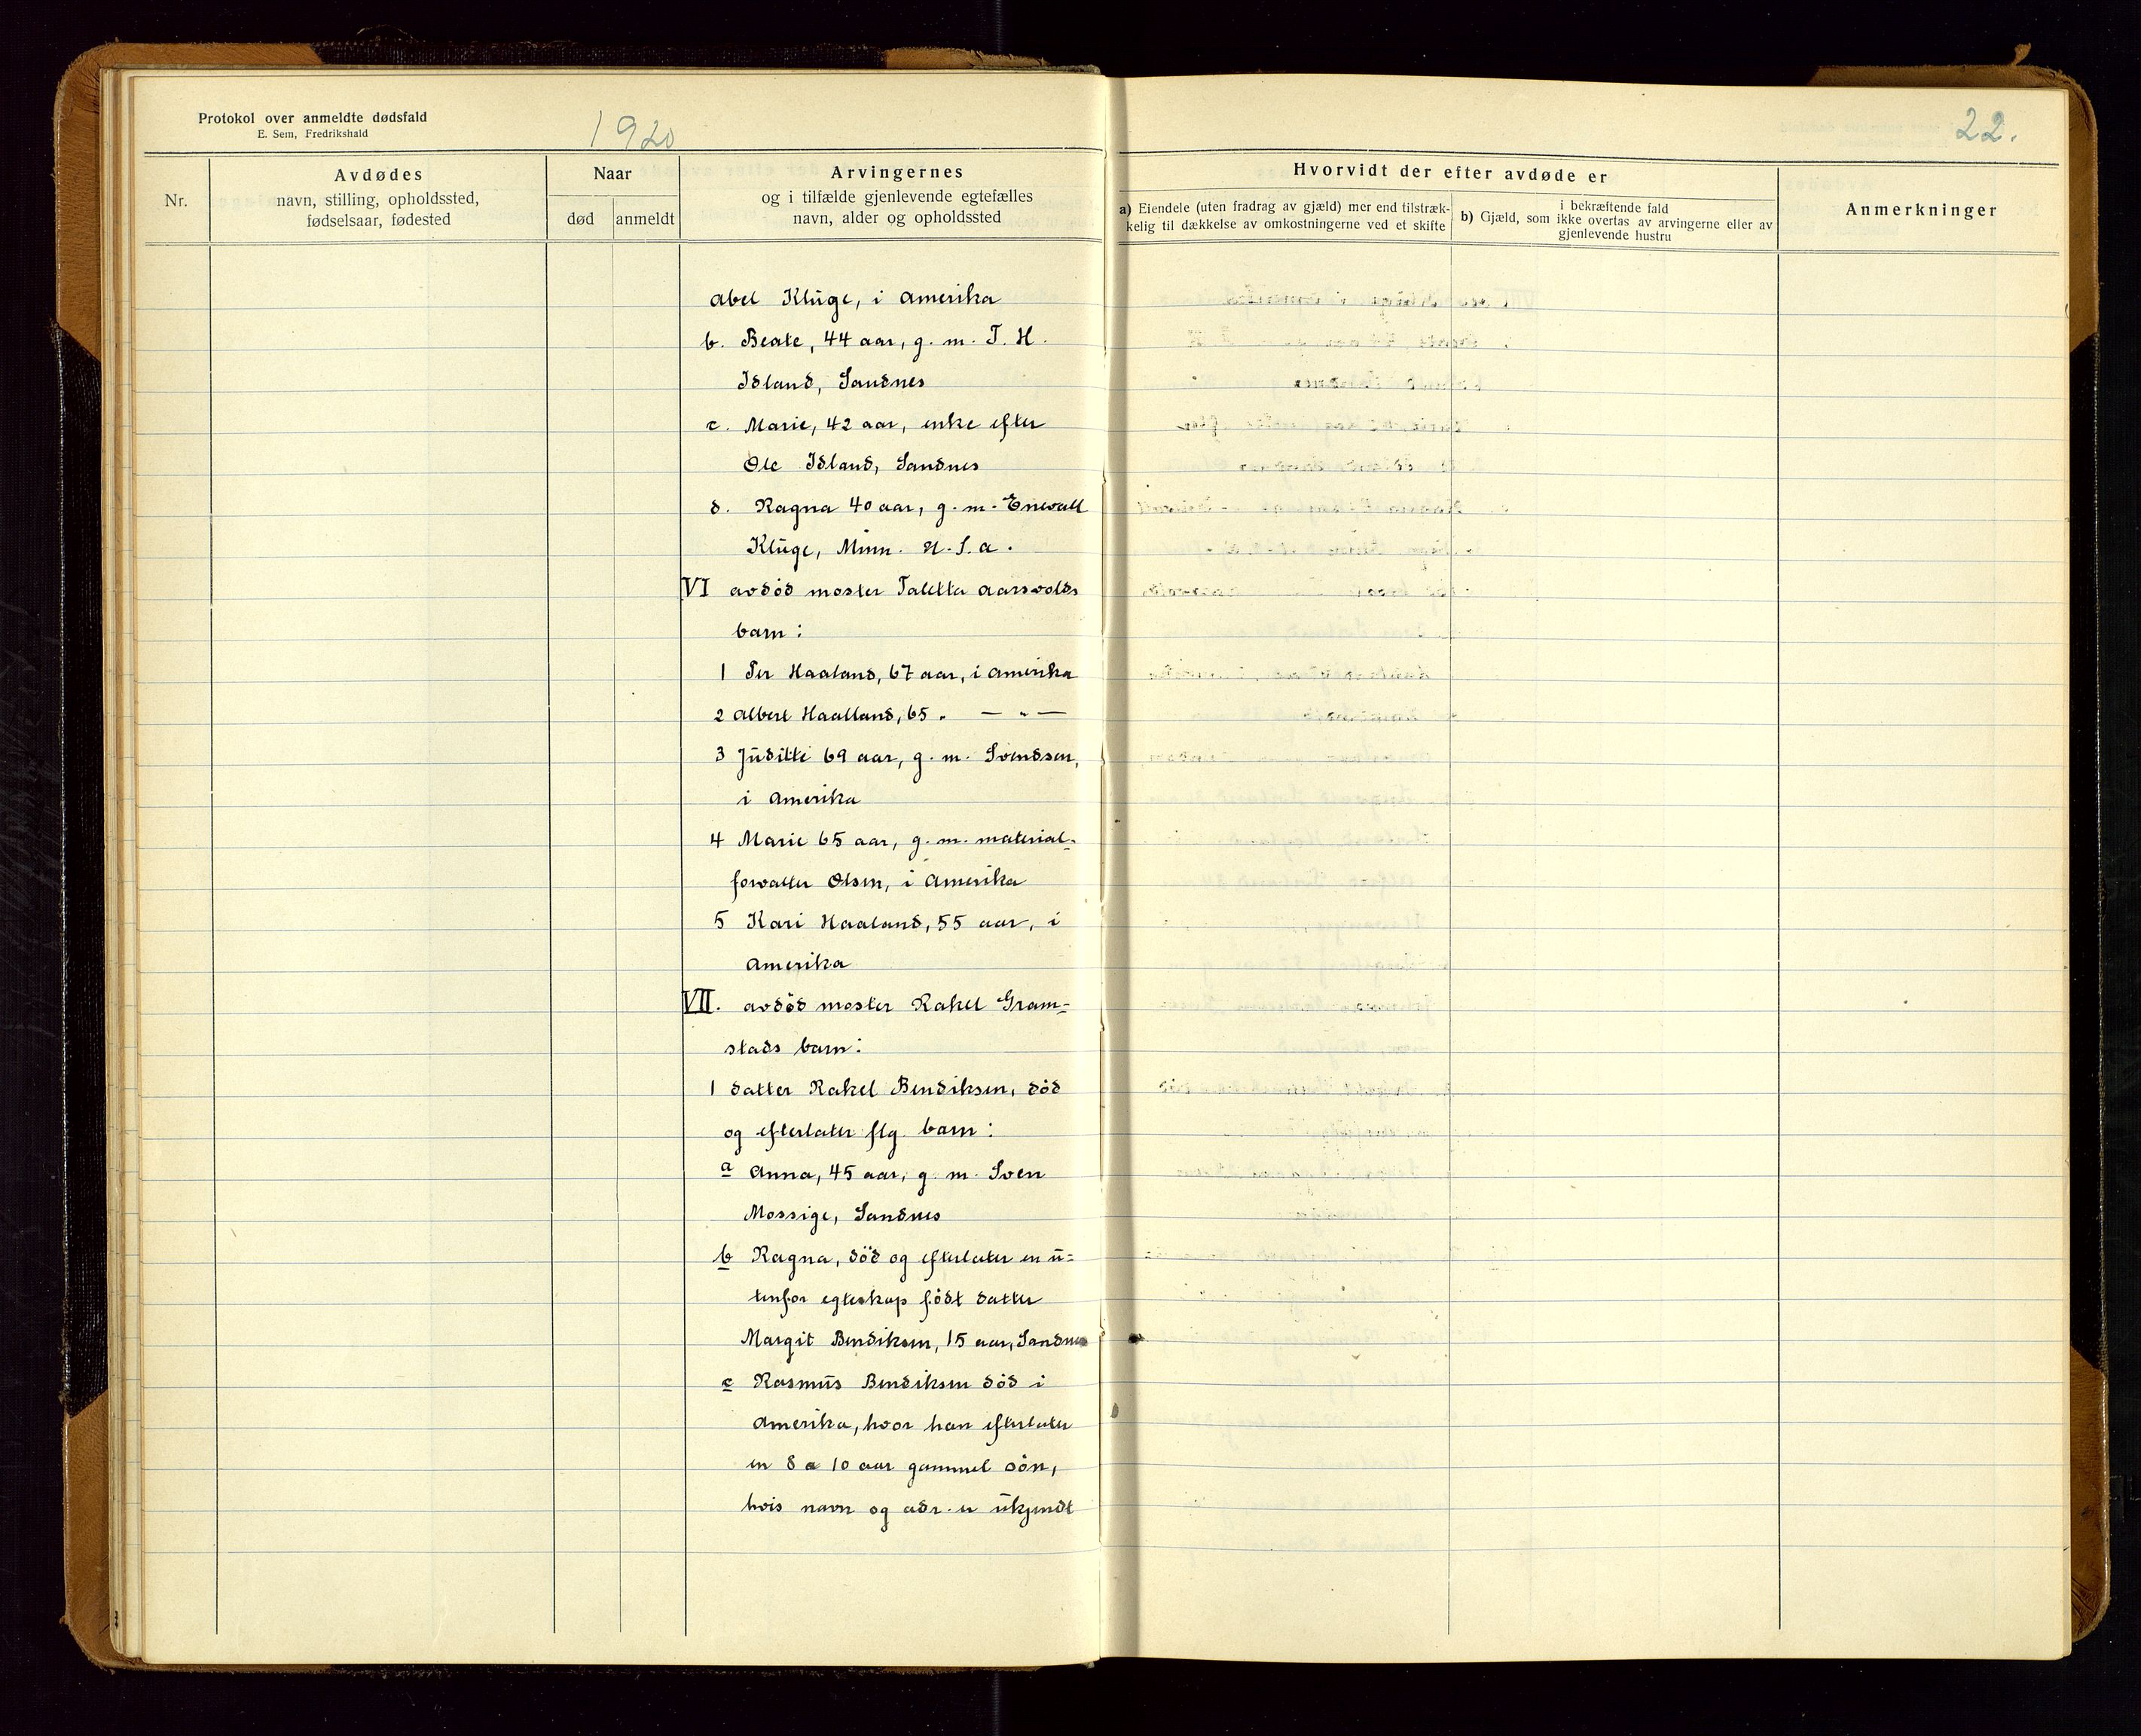 Protokol over anmeldte dødsfald
E. Sem, Fredrikshald
1920
22.
Nr.
Avdødes
navn, stilling, opholdssted,
fødselsaar, fødested
Naar
død
anmeldt
Arvingernes
og i tilfælde gjenlevende egtefælles
navn, alder og opholdssted
Hvorvidt der efter avdøde er
a) Eiendele (uten fradrag av gjæld) mer end tilstræk-
kelig til dækkelse av omkostningerne ved et skifte
i bekræftende fald
b) Gjæld, som ikke overtas av arvingerne eller av
gjenlevende hustru
Anmerkninger
Abel Kluge, i Amerika
b. Beate, 44 aar, g. m. T. H.
Idland, Sandnes
c. Marie, 42 aar, enke efter
Ole Idland, Sandnes
d. Ragna 40 aar, g. m. Enevall
Kluge, Minn. U.S.A.
VI avdød moster Taletta Aarsvolds
barn:
1 Per Haaland, 67 aar, i Amerika
2 Albert Haalland, 65 " — " —
3 Juditte 69 aar, g. m. Svendsen,
i Amerika
4 Marie 65 aar, g. m. material-
forvalter Olsen, i Amerika
5 Kari Haaland, 55 aar, i
Amerika
VII. avdød moster Rakel Gram-
stads barn:
1 datter Rakel Bendiksen, død
og efterlater flg. barn:
a Anna, 45 aar, g. m. Sven
Mossige, Sandnes
b Ragna, død og efterlater en u-
tenfor egteskap født datter
Margit Bendiksen, 15 aar, Sandnes
c Rasmus Bendiksen død i
Amerika, hvor han efterlater
en 8 a 10 aar gammel søn,
hvis navn og adr. er ukjendt